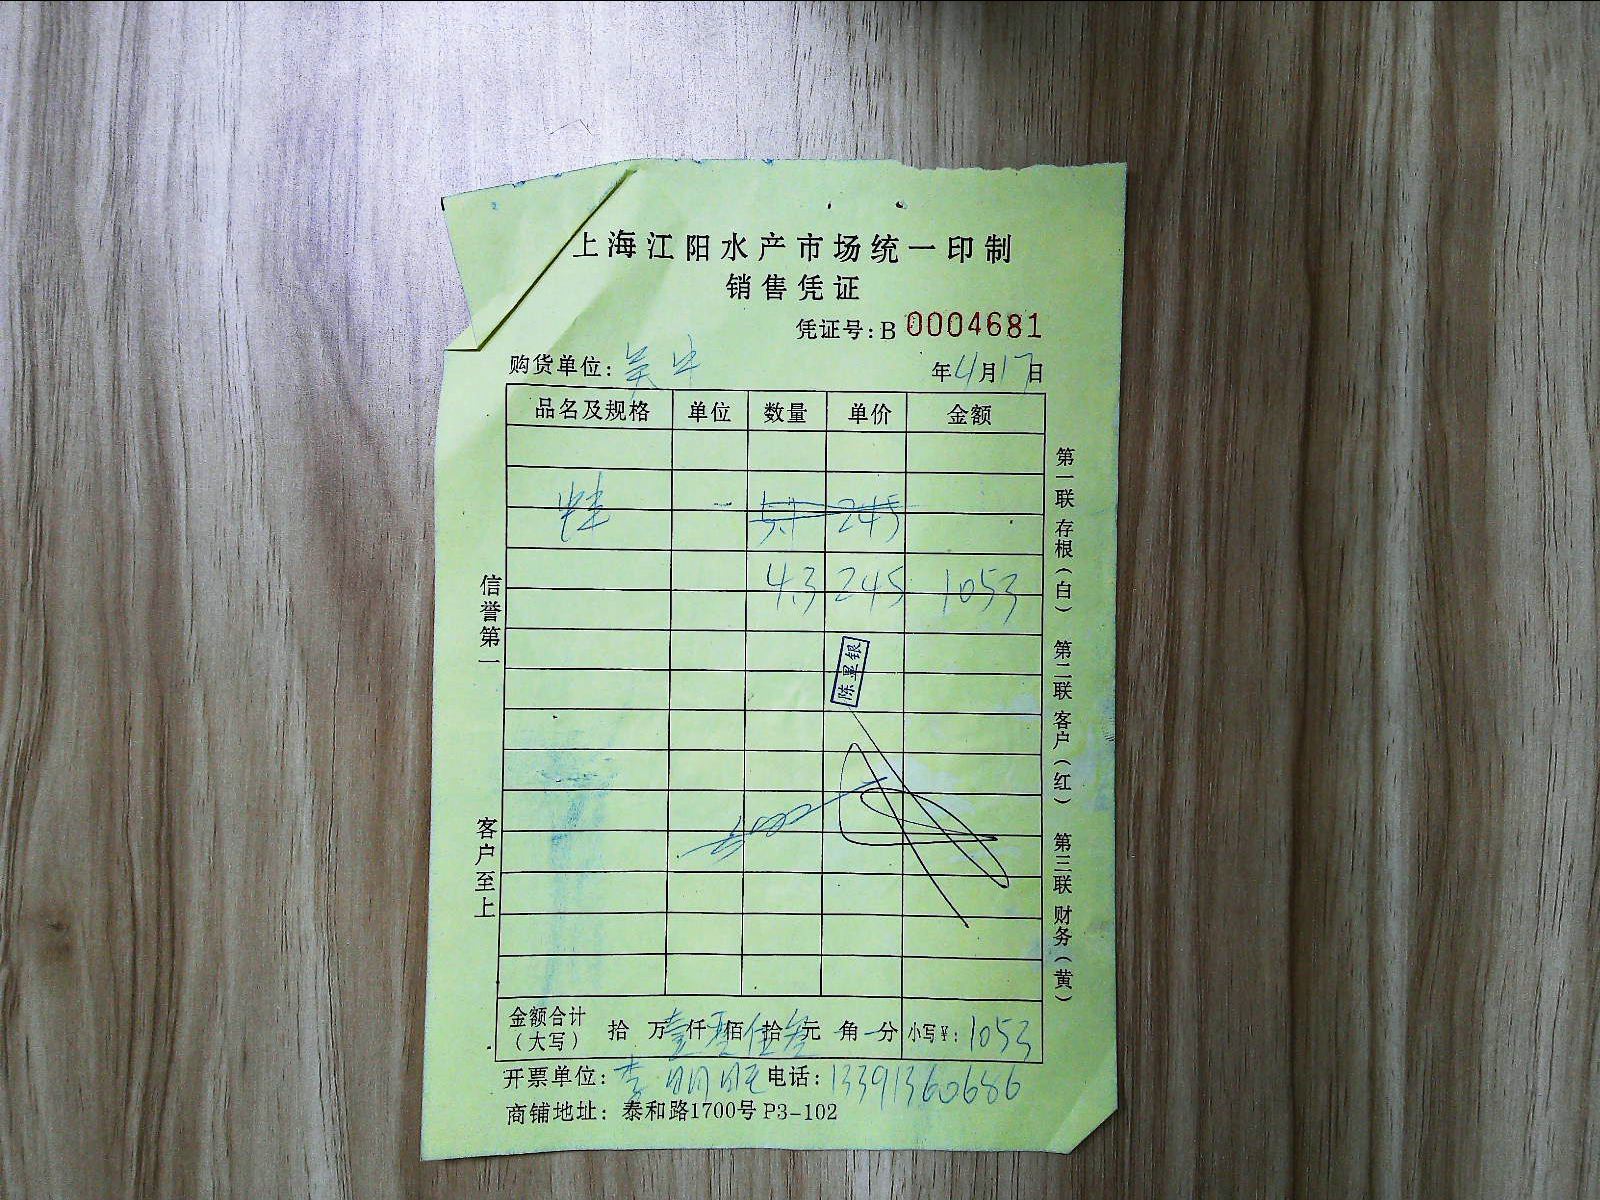 上海江阳水产市场统一印制
销售凭证
凭证号:B 0004681
购货单位: 年4月17日
品名及规格 单位 数量 单价 金额
5.1 245
4.3 245 1053
陈星银
金额合计(大写) 拾 万壹仟零佰伍拾叁元 角 分 小写¥: 1053
开票单位: 李明旺 电话: 13391360686
商铺地址: 泰和路1700号 P3-102
信誉第一
客户至上
第一联 存根(白)
第二联 客户(红)
第三联 财务(黄)